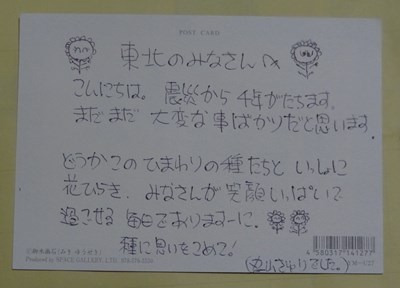 POST CARD
東北のみなさんへ
こんにちは。震災から4年がたちます。
まだまだ大変な事ばかりだと思います
どうかこのひまわりの種たちといっしょに
花ひらき、みなさんが笑顔いっぱいで
過ごせる毎日でありますように。
種に思いをこめて!
Produced by SPACE GALLERY, LTD.
4 580317 141277